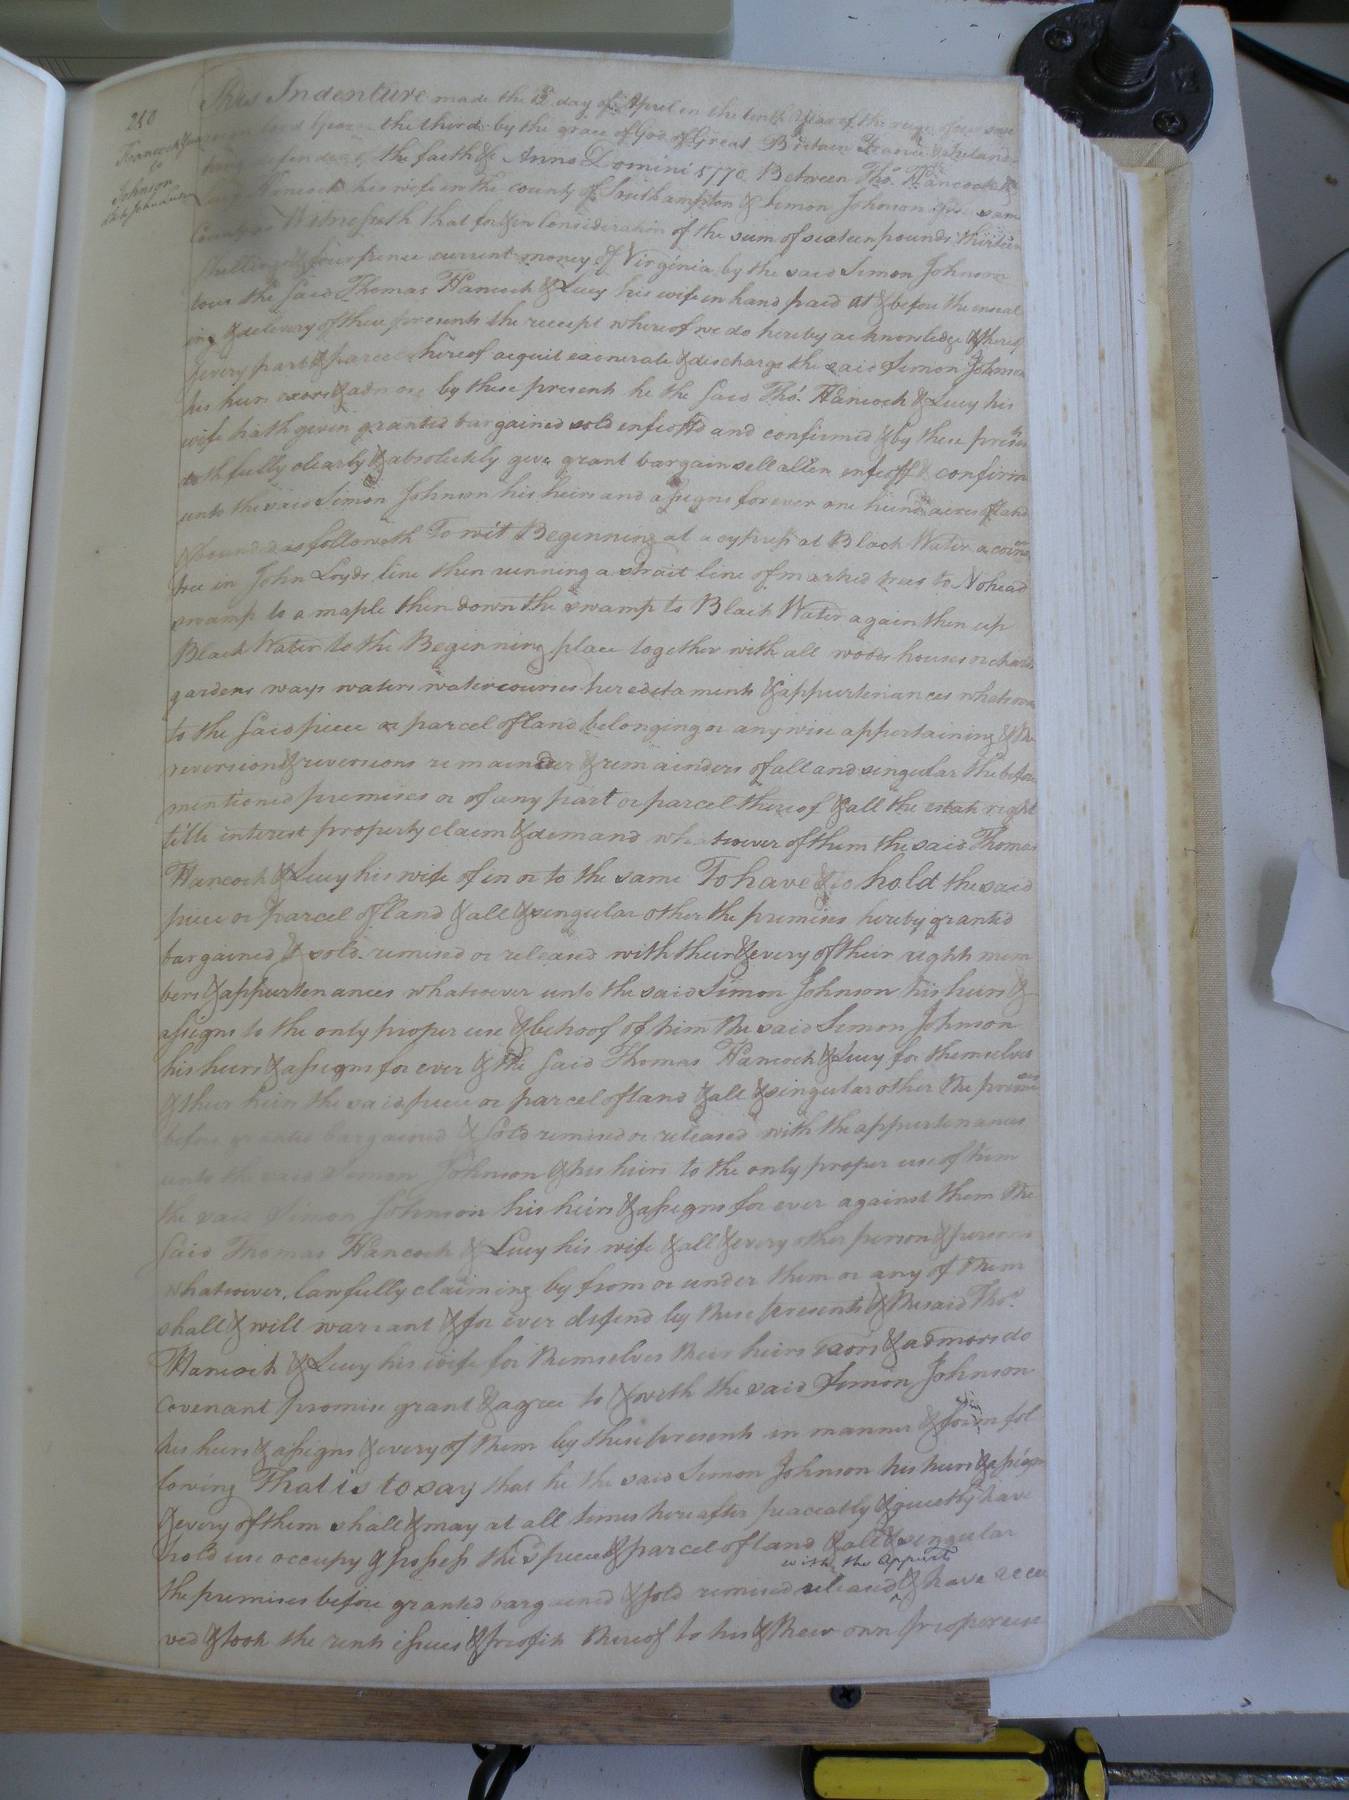 210
Hancock &ux
to
Johnson
This Indenture made the 12th day of April in the tenth Year of the reign of our sove
reign lord George the third by the grace of God of Great Britain France & Ireland
king defender of the faith &c Anno Domini 1770 Between Thos. Hancock &
Lucy Hancock his wife in the county of Southampton & Simon Johnson of the same
County Witnesseth that for & in Consideration of the sum of sixteen pounds thirteen
shillings & four pence current money of Virginia by the said Simon Johnson
to us the said Thomas Hancock & Lucy his wife in hand paid at & before the enseal
ing & delivery of these presents the receipt whereof we do hereby acknowledge & thereof
& every part & parcel thereof acquit exonerate & discharge the said Simon Johnson
his heirs exors & admors by these presents he the said Thos. Hancock & Lucy his
wife hath given granted bargained sold enfeoffd and confirmed & by these presents
doth fully clearly & absolutely give grant bargain sell alien enfeoff & confirm
unto the said Simon Johnson his heirs and assigns forever one hund acres of land
& bounded as followeth To wit Beginning at a cypress at Black Water a corner
tree in John Loyds line then running a strait line of marked trees to Nohead
swamp to a maple then down the swamp to Black Water again then up
Black Water to the Beginning place together with all woods houses orchards
gardens ways waters watercourses hereditaments & appurtenances whatsoever
to the said piece or parcel of land belonging or any wise appertaining & the
reversion & reversions remainder & remainders of all and singular the before
mentioned premises or of any part or parcel thereof & all the estate right
title interest property claim & demand whatsoever of them the said Thomas
Hancock & Lucy his wife of in or to the same To have & to hold the said
piece or parcel of land & all & singular other the premises hereby granted
bargained & sold remised or released with their & every of their right mem
bers & appurtenances whatsoever unto the said Simon Johnson his heirs &
assigns to the only proper use & behoof of him the said Simon Johnson
his heirs & assigns for ever & the said Thomas Hancock & Lucy for themselves
& their heirs the said piece or parcel of land & all & singular other the premises
before granted bargained & sold remised or released with the appurtenances
unto the said Simon Johnson & his heirs to the only proper use of him
the said Simon Johnson his heirs & assigns for ever against them the
said Thomas Hancock & Lucy his wife & all & every other person & persons
whatsoever, lawfully claiming by from or under them or any of them
shall & will warrant & for ever defend by these presents & the said Thos.
Hancock & Lucy his wife for themselves their heirs exors & admors do
covenant promise grant & agree to & with the said Simon Johnson
his heirs & assigns & every of them by these presents in manner & form fol
lowing That is to say that he the said Simon Johnson his heirs & assigns
& every of them shall & may at all times hereafter peaceably & quietly have
hold use occupy & possess the sd piece & parcel of land & all & singular
with the Appurts
the premises before granted bargained & sold remised released & have recei
ved & took the rents issues & profits thereof to his & their own proper use